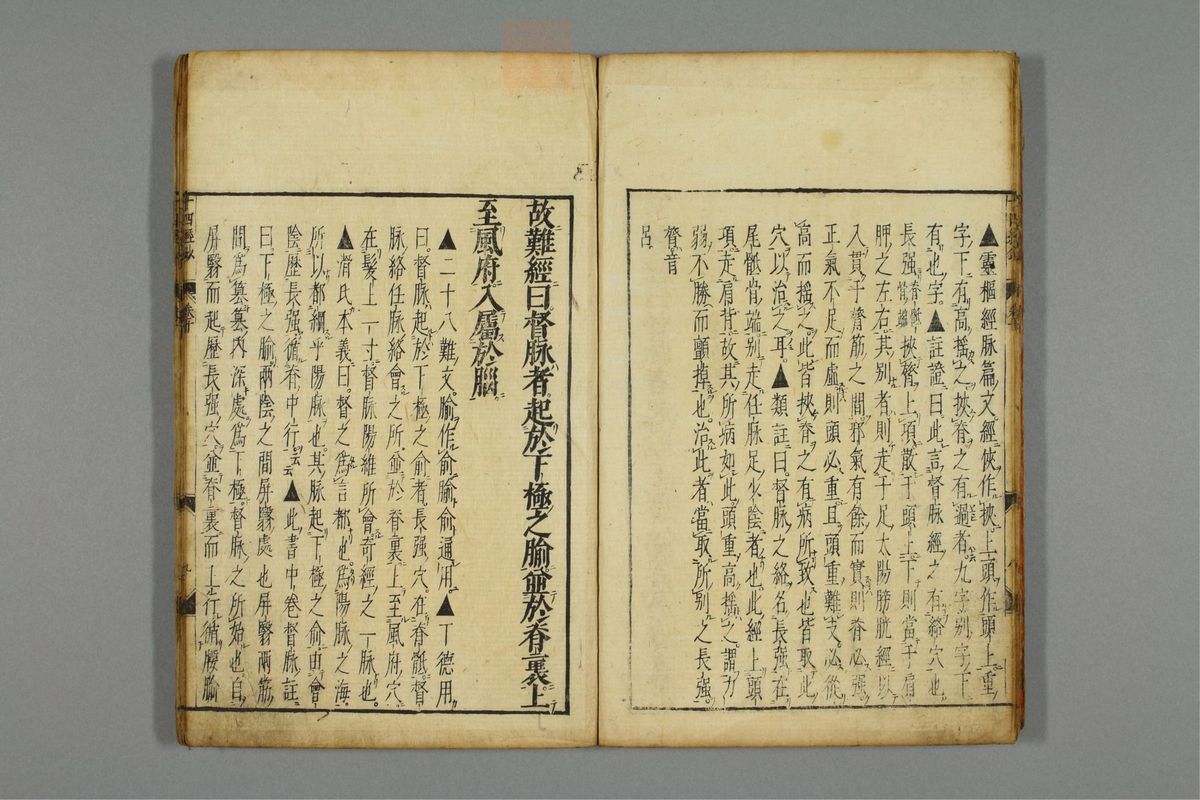 ▲靈樞經脉篇文經俠作挾上頭作頭上重
字下有高搖之挾脊之有過者九字別字下
有也字▲註證曰此言督脉經之有絡穴也
長强脊骶骨端挾膂上項散于頭上下則當于肩
胛之左右其別者則走于足太陽膀胱經以
入貫于膂筋之間邪氣有餘而實則脊必强
正氣不足而虛則頭必重且頭重難支必從
高而搖之此皆挾脊之有病所致也皆取此
穴以治之耳▲類註曰督脉之絡名長强在
尾骶骨端別走任脉足少陰者也此經上頭
項走肩背故其所病如此頭重高搖之謂力
弱不勝而顫掉也治此者當取所別之長强
膂音
呂
故難經曰督脉者起於下極之腧並於脊裏上
至風府入屬於腦
▲二十八難文腧作俞腧俞通用▲丁德用
曰督脉起於下極之俞者長强穴在脊骶督
脉絡任脉絡會之所並於脊裏上至風府穴
在髮上一寸督脉陽維所會奇經之一脉也
▲滑氏本義曰督之爲言都也爲陽脉之海
所以都綱乎陽脉也其脉起下極之俞由會
陰歷長强循脊中行云云▲此書中卷督脉註
曰下極之腧兩陰之間屏翳處也屏翳兩筋
間爲篡篡內深處爲下極督脉之所始也自
屏翳而起歷長强穴並脊裏而上行循腰腧